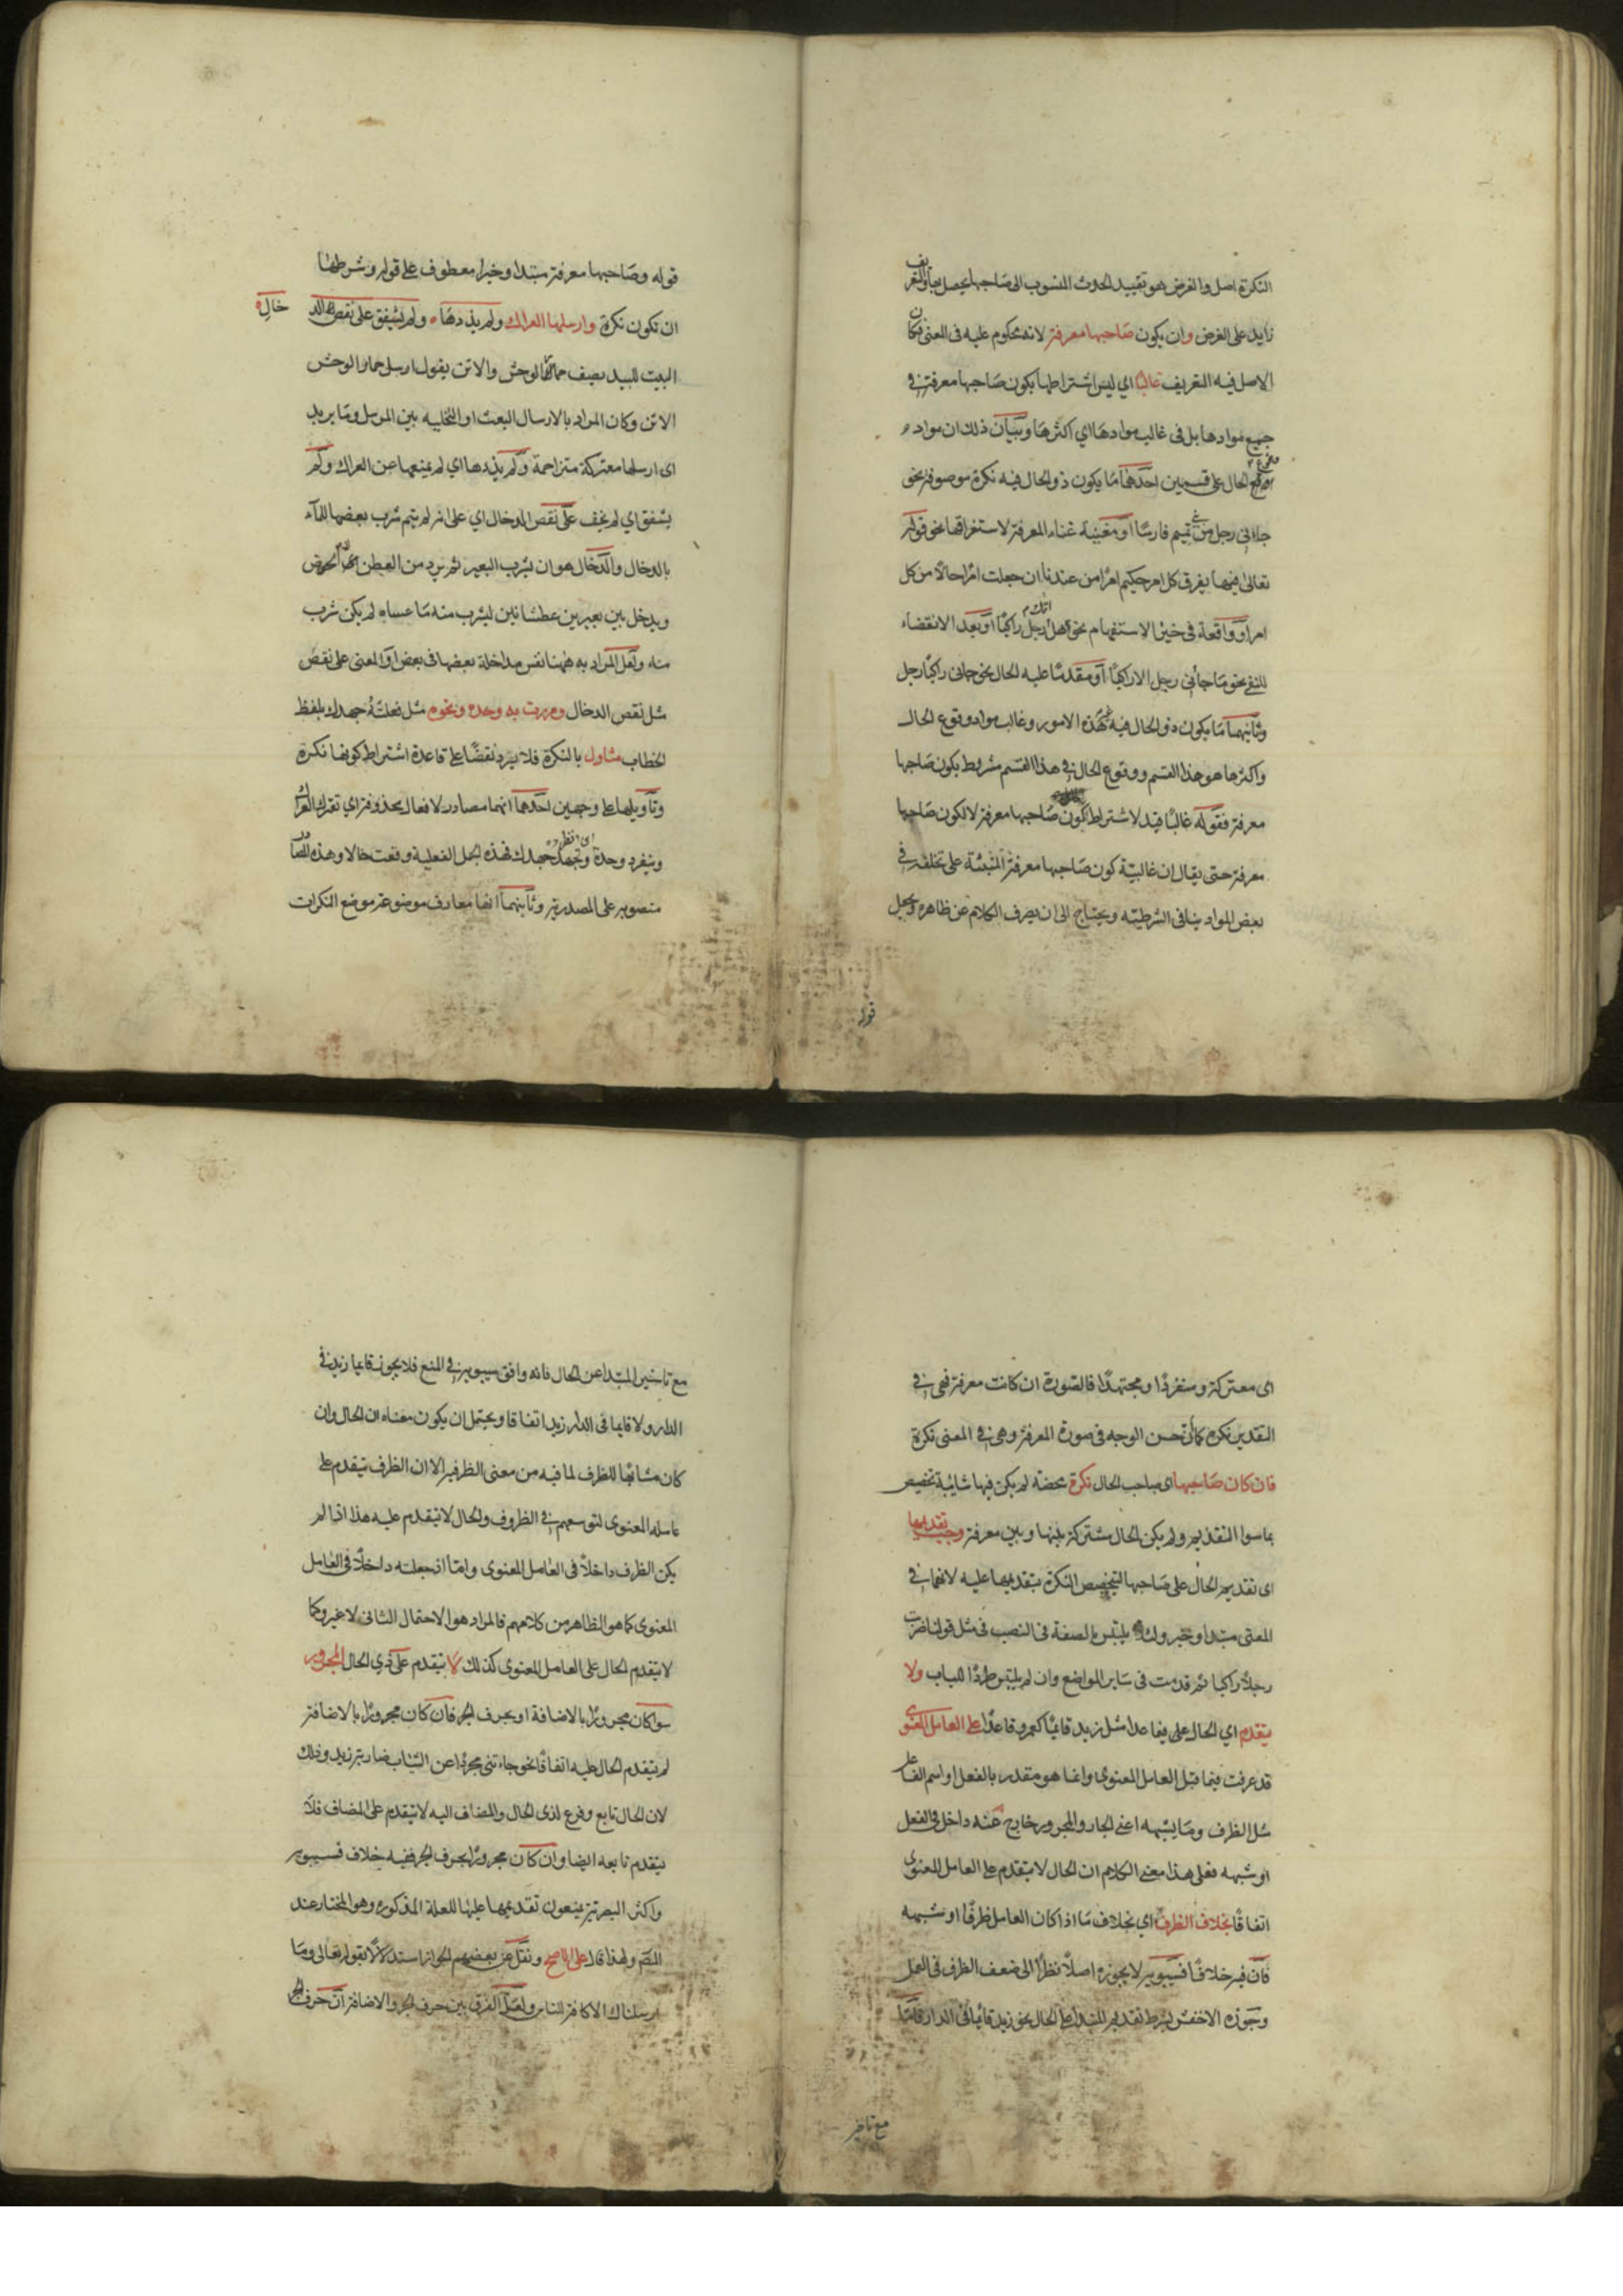 النكرة اصل والغرض هو تقييد الحدث المنسوب الى صاحبها يحصل بها والتعريف
زايد على الغرض وان يكون صاحبها معرفة لانه محكوم عليه فى المعنى فكان
الاصل فيه التعريف غالبا اي ليس اشتراطها بكون صاحبها معرفة في
جميع موادها بل فى غالب موادها اي اكثرها وبيان ذلك ان مواد
وقوع الحال على قسمين احدهما ما يكون ذو الحال فيه نكرة موصوفة نحو
جاءنى رجل من بني تميم فارسًا او مغنية غناء المعرفة لاستغراقها نحو قوله
تعالى فيها يفرق كل امر حكيم امرًا من عندنا ان جعلت امرًا حالا من كل
امر او واقعة فى حيز الاستفهام نحو هل اتاك رجل راكبًا او بعد الا نقضاء
للنفي نحو ما جاءنى رجل الا راكبًا او مقدمًا عليه الحال نحو جاءنى راكبًا رجل
وثانيهما ما يكون ذو الحال فيه غير هذه الامور وغالب مواد وقوع الحال
واكثرها هو هذا القسم ووقوع الحال في هذا القسم مشروط بكون صاحبها
معرفة فقوله غالبًا قيد لاشتراط كون صاحبها معرفة لا لكون صاحبها
معرفة حتى يقال ان غالبية كون صاحبها معرفة المنبئة على تخلفه في
بعض المواد ينافى الشرطية ويحتاج الى ان يصرف الكلام عن ظاهره ويجعل
قوله
قوله وصاحبها معرفة مبتدا وخبرا معطوف على قوله وشرطها
ان تكون نكرة وارسلها العراك ولم يذدها ولم يشفق على نغص الدخال
البيت للبيد يصف حمار الوحش والاتن يقول ارسل حمار الوحش
الاتن وكان المراد بالارسال البعث او التخلية بين المرسل وما يريد
اى ارسلها معتركة متزاحمة ولم يذدها اي لم يمنعها عن العراك ولم
يشفق اي لم يخف على نغص الدخال اي على انه لم يتم شرب بعضها للماء
بالدخال والدخال هو ان يشرب البعير ثم يرد من العطن الى الحوض
ويدخل بين بعيرين عطشانين ليشرب منه ما عساه لم يكن شرب
منه ولعل المراد به ههنا نفس مداخلة بعضها فى بعض او المعنى على نغص
مثل نغص الدخال ومررت به وحده ونحوه مثل فعلته جهدك بلفظ
الخطاب متاول بالنكرة فلا يرد نقضًا على قاعدة اشتراط كونها نكرة
وتاويلها على وجهين احدهما انها مصادر لافعال محذوفة اي تعترك العراك
وينفرد وحده وتجتهد جهدك فهذه الجمل الفعلية وقعت حالا وهذه المصادر
منصوبة على المصدرية وثانيهما انها معارف موضوعة موضع النكرات
اى معتركة ومنفردًا ومجتهدًا فالصورة ان كانت معرفة فهى في
التقدير نكرة كما ان حسن الوجه فى صورة المعرفة وهى في المعنى نكرة
فان كان صاحبها اى صاحب الحال نكرة محضة لم يكن فيها شائبة تخصيص
بما سوا التقديم ولم يكن الحال مشتركة بينها وبين معرفة وجب تقديمها
اى تقديم الحال على صاحبها لتخصيص النكرة بتقديمها عليه لانهما في
المعنى مبتدا وخبر ولئلا يلتبس بالصفة فى النصب فى مثل قولنا ضربت
رجلًا راكبا ثم قدمت فى سائر المواضع وان لم يلتبس طردًا للباب ولا
يتقدم اي الحال على فيما عدا مثل زيد قائمًا كعمرو قاعدًا على العامل المعنوى
قد عرفت فيما قبل العامل المعنوى وانما هو مقدر بالفعل او اسم الفاعل
مثل الظرف وما يشبهه اعني الجار والمجرور خارج عنه داخل في الفعل
او شبهه فعلى هذا معنى الكلام ان الحال لا يتقدم على العامل المعنوى
اتفاقًا بخلاف الظرف اي بخلاف ما اذا كان العامل ظرفًا او شبهه
فان فيه خلافًا فسيبويه لا يجوزه اصلًا نظرًا الى ضعف الظرف فى العمل
وجوزه الاخفش بشرط تقديم المبتدا على الحال نحو زيد قائمًا فى الدار فاما
مع تاخير
مع تاخير المبتدا عن الحال فانه وافق سيبويه في المنع فلا يجوز قايما زيد فى
الدار ولا قايما فى الدار زيد اتفاقا ويحتمل ان يكون معناه ان الحال وان
كان مشابهًا للظرف لما فيه من معنى الظرفية الا ان الظرف يتقدم على
عامله المعنوى لتوسعهم في الظروف والحال لا تتقدم عليه هذا اذا لم
يكن الظرف داخلًا فى العامل المعنوى واما اذ جعلته داخلًا فى العامل
المعنوى كما هو الظاهر من كلامهم فالمراد هو الاحتمال الثانى لا غير وكما
لا يتقدم الحال على العامل المعنوى كذلك لا يتقدم على ذي الحال المجرور
سوا كان مجرورًا بالاضافة او بحرف الجر فان كان مجرورًا بالاضافة
لم يتقدم الحال عليه اتفاقًا نحو جاءتنى مجردًا عن الثياب ضاربة زيد وذلك
لان الحال تابع وفرع لذى الحال والمضاف اليه لا يتقدم على المضاف فلا
يتقدم تابعه ايضا وان كان مجرورًا بحرف الجر ففيه خلاف فسيبويه
واكثر البصرية يمنعون تقديمها عليها للعلة المذكورة وهو المختار عند
المص ولهذا قال على الاصح ونقل عن بعضهم الجواز استدلالًا بقوله تعالى وما
ارسلناك الا كافة للناس ولعل الفرق بين حرف الجر والاضافة ان حرف الجر